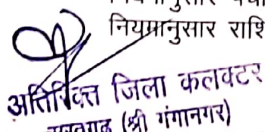 नियमानुसार राशि
अतिरिक्त जिला कलक्टर
सूरतगढ़ (श्री गंगानगर)